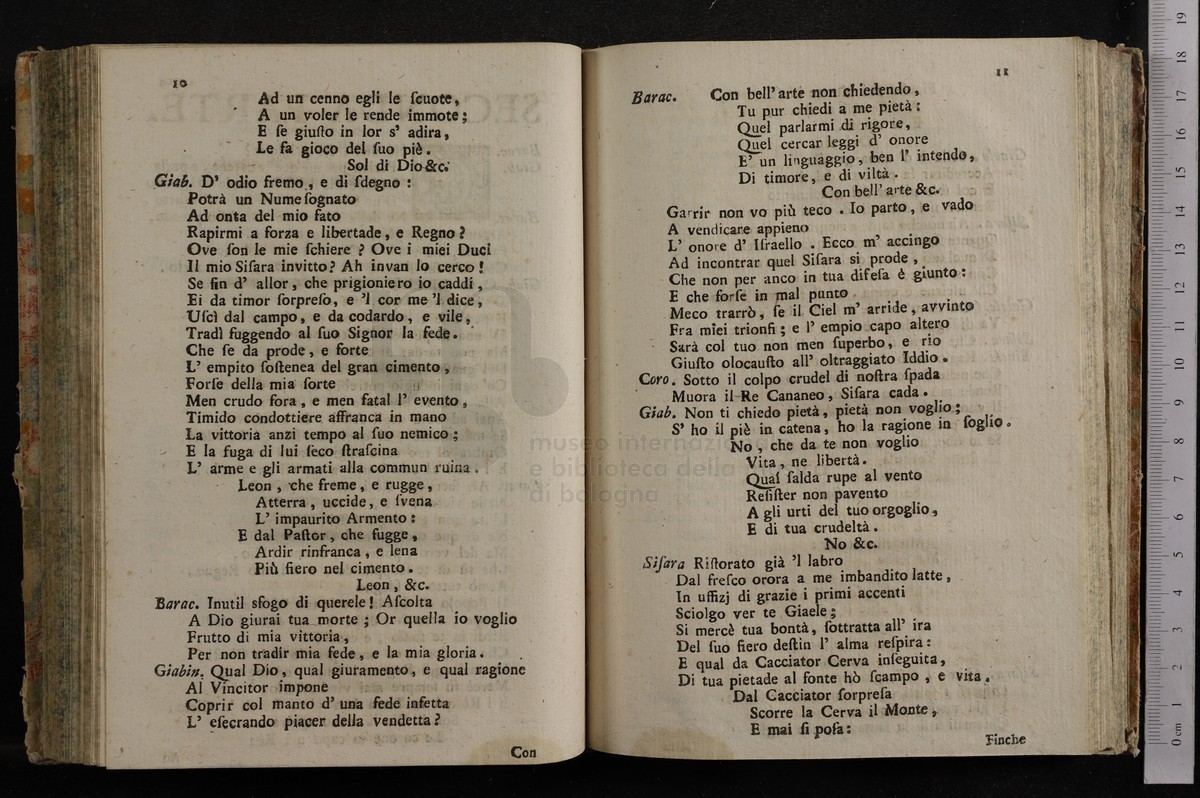 10
Ad un cenno egli le ſcuote,
A un voler le rende immote;
E ſe giuſto in lor s' adira,
Le fa gioco del ſuo piè.
Sol di Dio &c.
Giab. D' odio fremo, e di ſdegno:
Potrà un Nume ſognato
Ad onta del mio fato
Rapirmi a forza e libertade, e Regno?
Ove ſon le mie ſchiere? Ove i miei Duci
Il mio Siſara invitto? Ah invan lo cerco!
Se fin d' allor, che prigioniero io caddi,
Ei da timor ſorpreſo, e 'l cor me 'l dice,
Uſcì dal campo, e da codardo, e vile,
Tradì fuggendo al ſuo Signor la fede.
Che ſe da prode, e forte
L' empito ſoſtenea del gran cimento,
Forſe della mia ſorte
Men crudo fora, e men fatal l' evento,
Timido condottiere affranca in mano
La vittoria anzi tempo al ſuo nemico;
E la fuga di lui ſeco ſtraſcina
L' arme e gli armati alla commun ruina.
Leon, che freme, e rugge,
Atterra, uccide, e ſvena
L' impaurito Armento:
E dal Paſtor, che fugge,
Ardir rinfranca, e lena
Più fiero nel cimento.
Leon, &c.
Barac. Inutil sfogo di querele! Aſcolta
A Dio giurai tua morte; Or quella io voglio
Frutto di mia vittoria,
Per non tradir mia fede, e la mia gloria.
Giabin. Qual Dio, qual giuramento, e qual ragione
Al Vincitor impone
Coprir col manto d' una fede infetta
L' eſecrando piacer della vendetta?
Con
11
Barac. Con bell' arte non chiedendo,
Tu pur chiedi a me pietà:
Quel parlarmi di rigore,
Quel cercar leggi d' onore
E' un linguaggio, ben l' intendo,
Di timore, e di viltà.
Con bell' arte &c.
Garrir non vo più teco. Io parto, e vado
A vendicare appieno
L' onore d' Iſraello. Ecco m' accingo
Ad incontrar quel Siſara sì prode,
Che non per anco in tua difeſa è giunto:
E che forſe in mal punto
Meco trarrò, ſe il Ciel m' arride, avvinto
Fra miei trionfi; e l' empio capo altero
Sarà col tuo non men ſuperbo, e rio
Giuſto olocauſto all' oltraggiato Iddio.
Coro. Sotto il colpo crudel di noſtra ſpada
Muora il Re Cananeo, Siſara cada.
Giab. Non ti chiedo pietà, pietà non voglio;
S' ho il piè in catena, ho la ragione in ſoglio.
No, che da te non voglio
Vita, ne libertà.
Qual ſalda rupe al vento
Reſiſter non pavento
A gli urti del tuo orgoglio,
E di tua crudeltà.
No &c.
Siſara Riſtorato già 'l labro
Dal freſco orora a me imbandito latte,
In uffizj di grazie i primi accenti
Sciolgo ver te Giaele;
Si mercè tua bontà, ſottratta all' ira
Del ſuo fiero deſtin l' alma reſpira:
E qual da Cacciator Cerva inſeguita,
Di tua pietade al fonte hò ſcampo, e vita.
Dal Cacciator ſorpreſa
Scorre la Cerva il Monte,
E mai ſi poſa:
Finche
museo internazionale
e biblioteca della
di bologna
0 cm 1 2 3 4 5 6 7 8 9 10 11 12 13 14 15 16 17 18 19